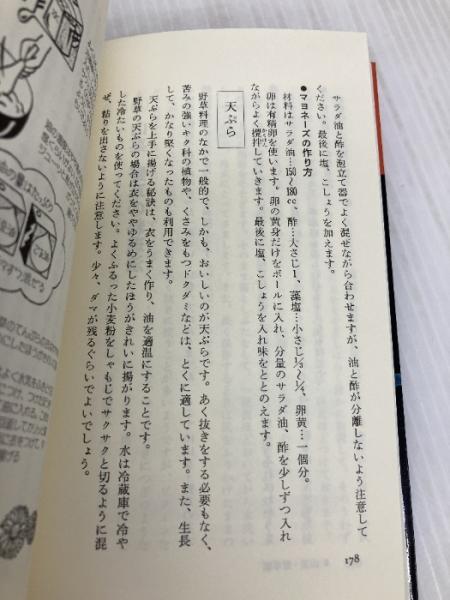 サラダ油と酢を泡立て器でよく混ぜながら合わせますが、油と酢が分離しないよう注意して
ください。最後に塩、こしょうを加えます。
●マヨネーズの作り方
材料はサラダ油…150〜180cc、酢…大さじ1、藻塩…小さじ⅓〜¼、卵黄…一個分。
卵は有精卵を使います。卵の黄身だけをボールに入れ、分量のサラダ油、酢を少しずつ入れ
ながらよく攪拌していきます。最後に塩、こしょうを入れ味をととのえます。
天ぷら
野草料理のなかで一般的で、しかも、おいしいのが天ぷらです。あく抜きをする必要もなく、
苦みの強いキク科の植物や、くさみをもつドクダミなどは、とくに適しています。また、生長
して、かなり堅くなったものも利用できます。
天ぷらを上手に揚げる秘訣は、衣をうまく作り、油を適温にすることです。
野草の天ぷらの場合は衣をややゆるめにしたほうがきれいに揚がります。水は冷蔵庫で冷や
した冷たいものを使ってください。よくふるった小麦粉をしゃもじでサクサクと切るように混
ぜ、粘りを出さないように注意します。少々、ダマが残るぐらいでよいでしょう。
178